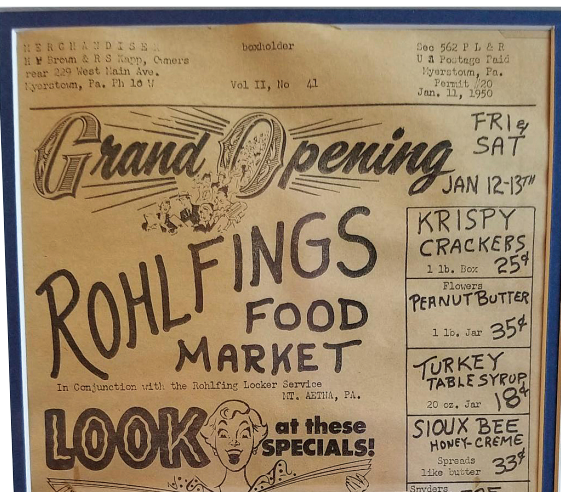 MERCHANDISER
H P Brown & R S Kapp, Owners
rear 229 West Main Ave.
Myerstown, Pa. Ph 18 W
boxholder
Vol II, No 41
Sec 562 P L & R
U S Postage Paid
Myerstown, Pa.
Permit #20
Jan. 11, 1950
Grand Opening
FRI &
SAT
JAN 12-13TH
ROHLFINGS
FOOD
MARKET
In Conjunction with the Rohlfing Locker Service
MT. AETNA, PA.
LOOK
at these
SPECIALS!
KRISPY
CRACKERS
1 lb. Box 25¢
Flowers
PEANUT BUTTER
1 lb. Jar 35¢
TURKEY
TABLE SYRUP
20 oz. Jar 18¢
SIOUX BEE
HONEY-CREME
Spreads
like butter 33¢
Snyders